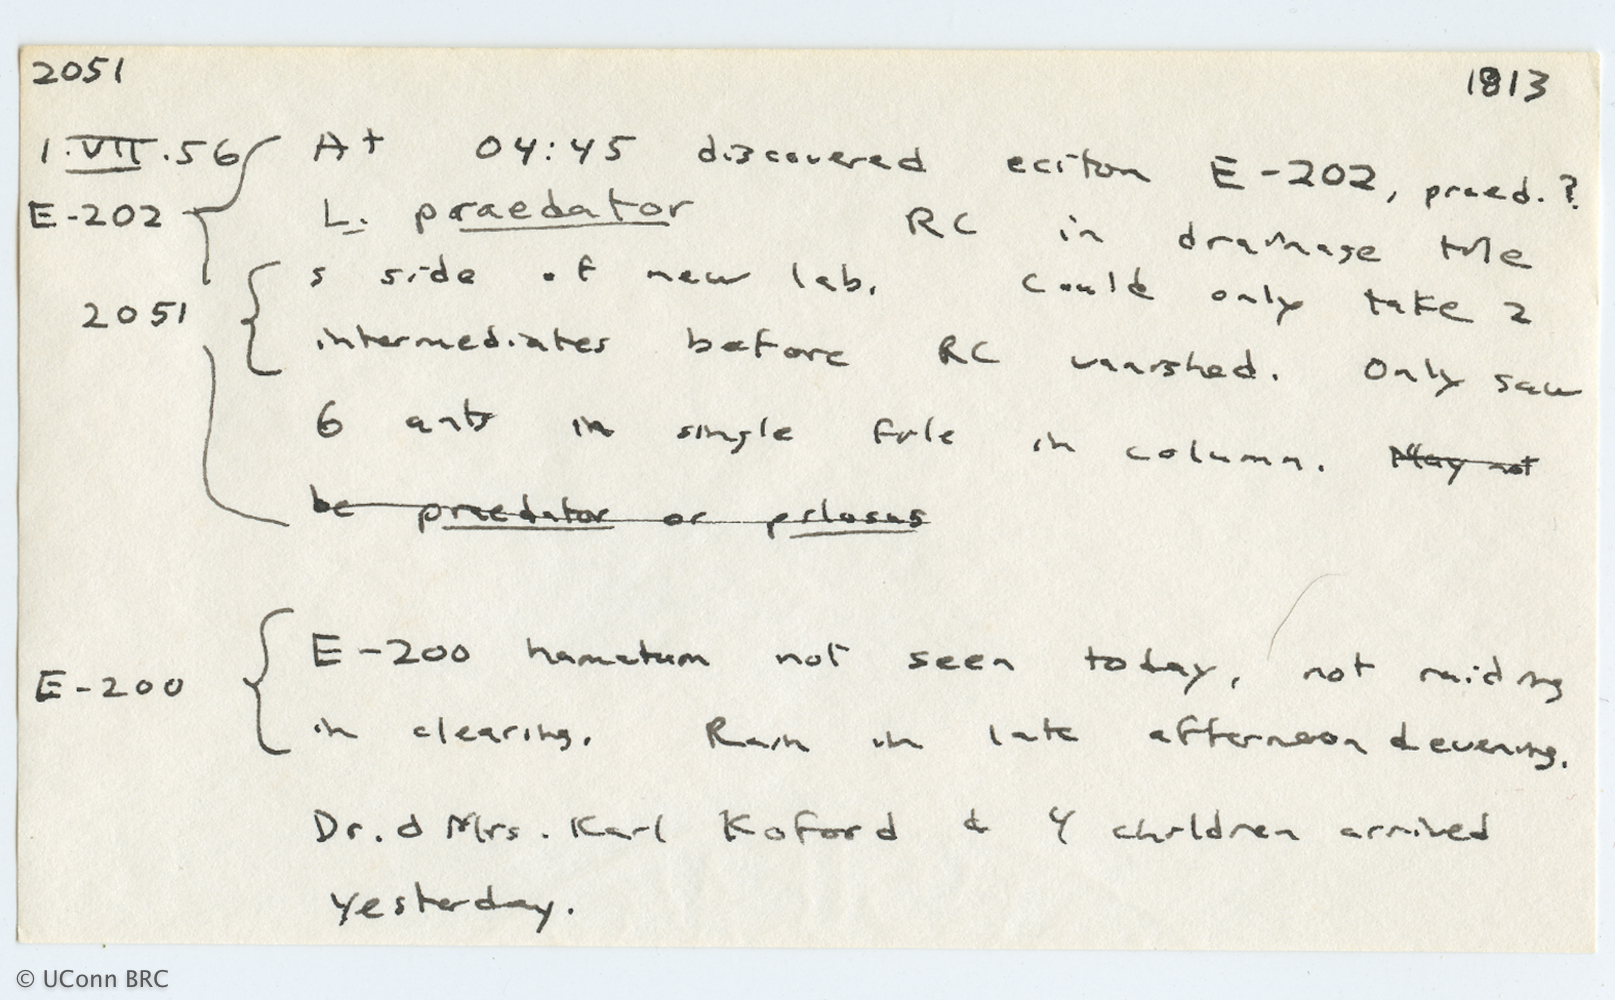 2051 1813
1.VII.56 At 04:45 discovered eciton E-202, praed.?
E-202 L. praedator RC in drainage tile
s side of new lab. Could only take 2
2051 intermediates before RC vanished. Only saw
6 ants in single file in column. May not
be praedator or pilosus
E-200 hamatum not seen today, not raiding
E-200 in clearing. Rain in late afternoon & evening.
Dr. & Mrs. Karl Koford & 4 children arrived
yesterday.
© UConn BRC